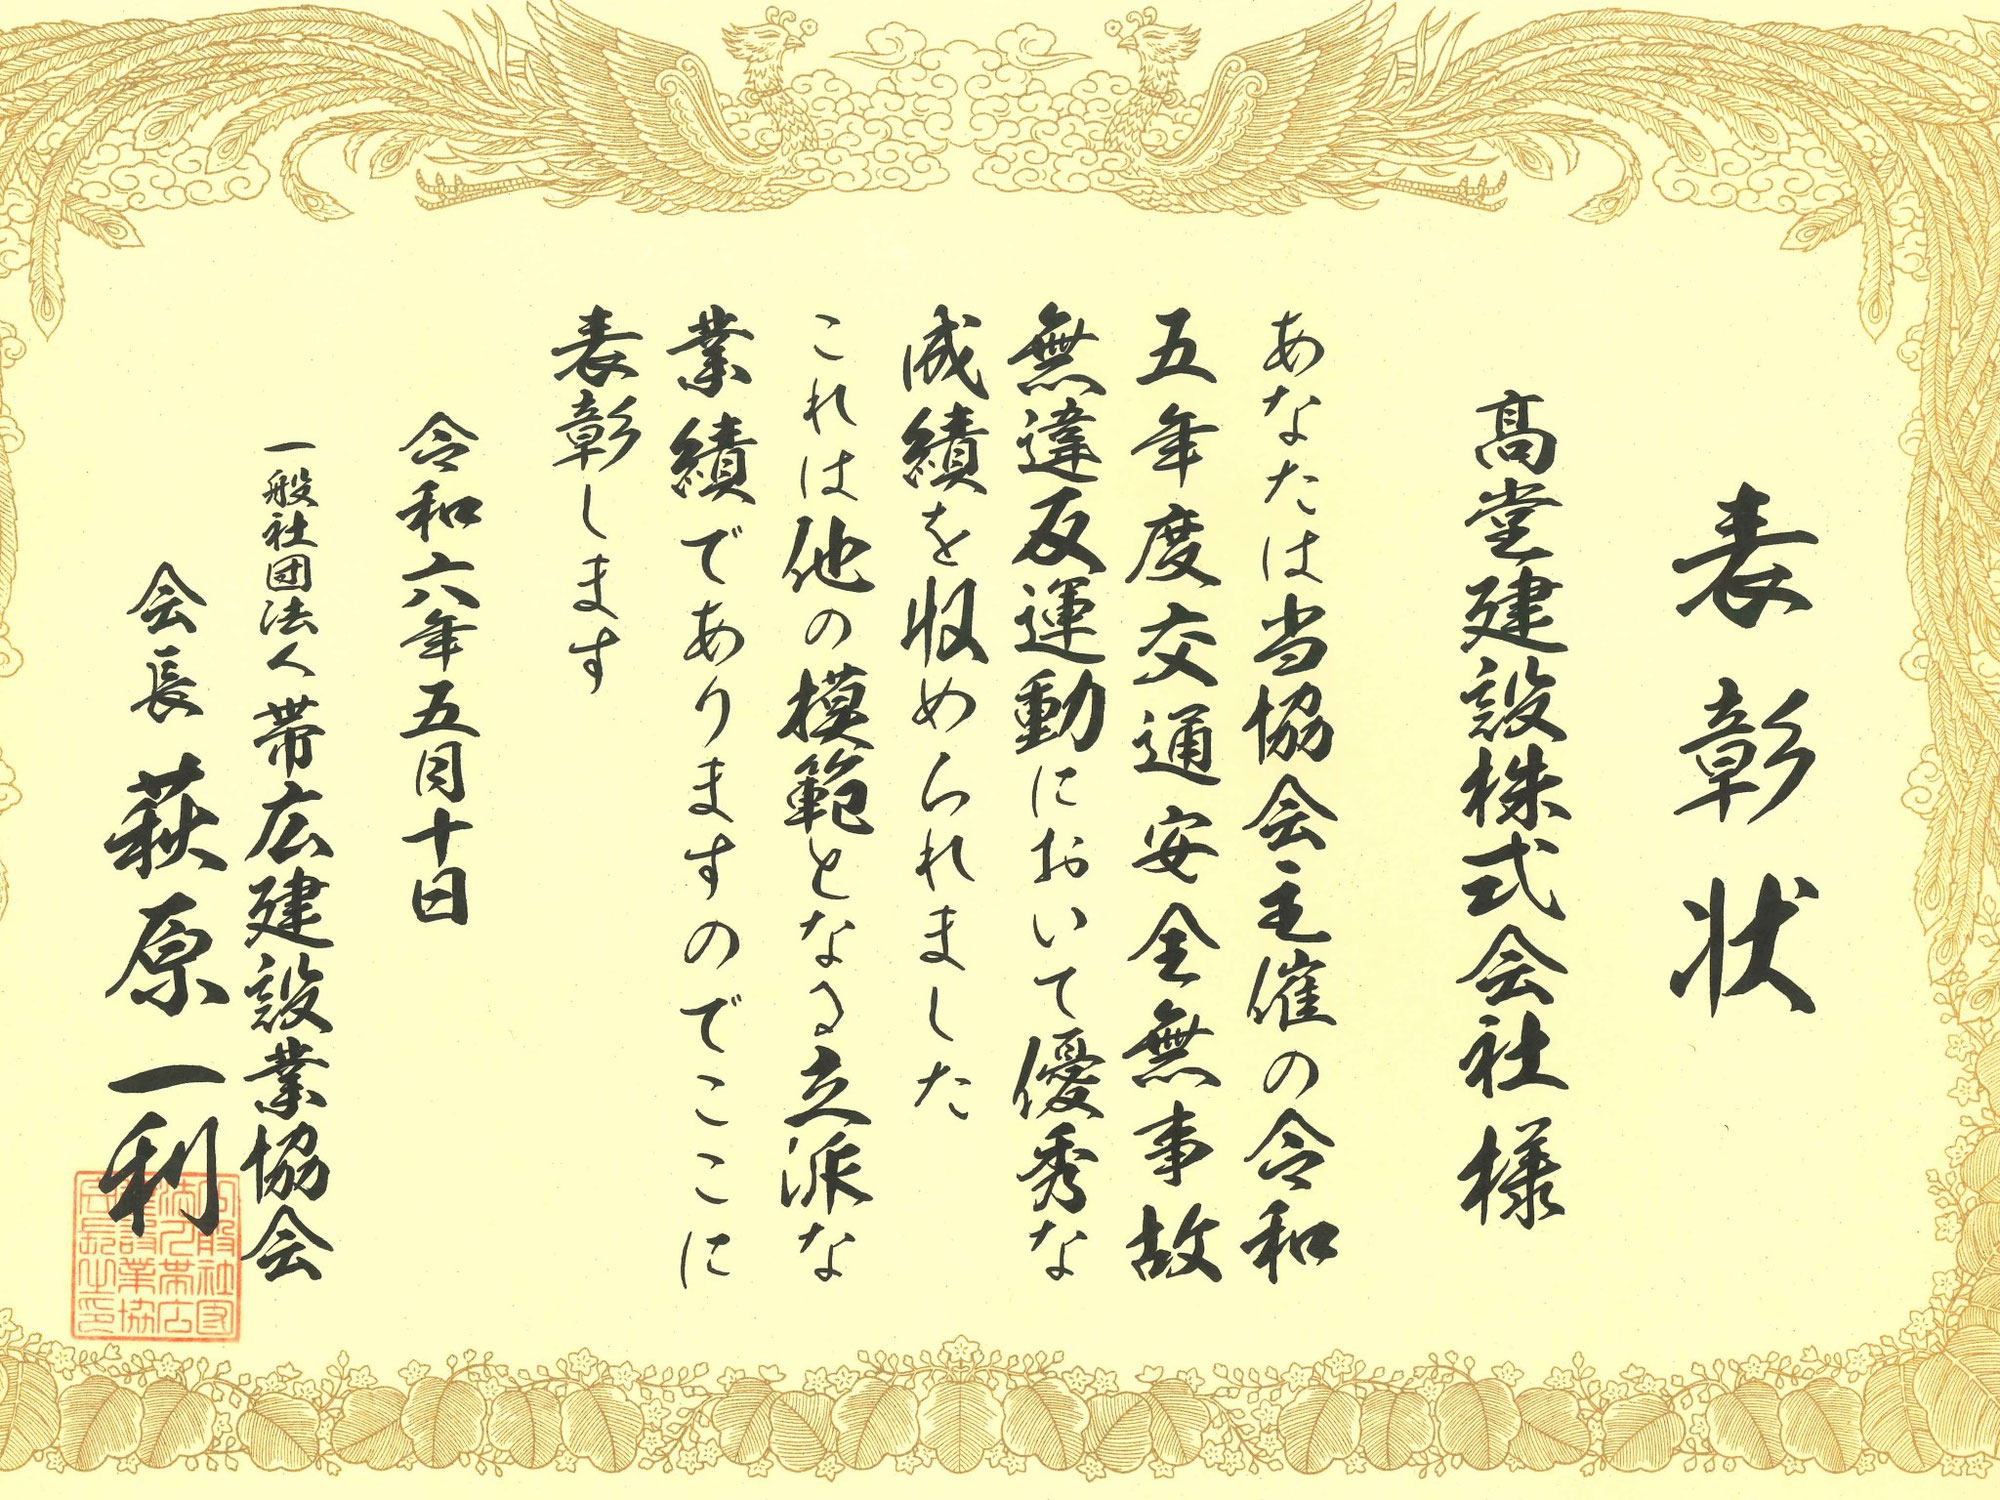 表彰状
髙堂建設株式会社様
あなたは当協会主催の令和
五年度交通安全無事故
無違反運動において優秀な
成績を収められました
これは他の模範となる立派な
業績でありますのでここに
表彰します
令和六年五月十日
一般社団法人帯広建設業協会
会長 萩原一利
一般社団
法人帯広
建設業協
会長之印